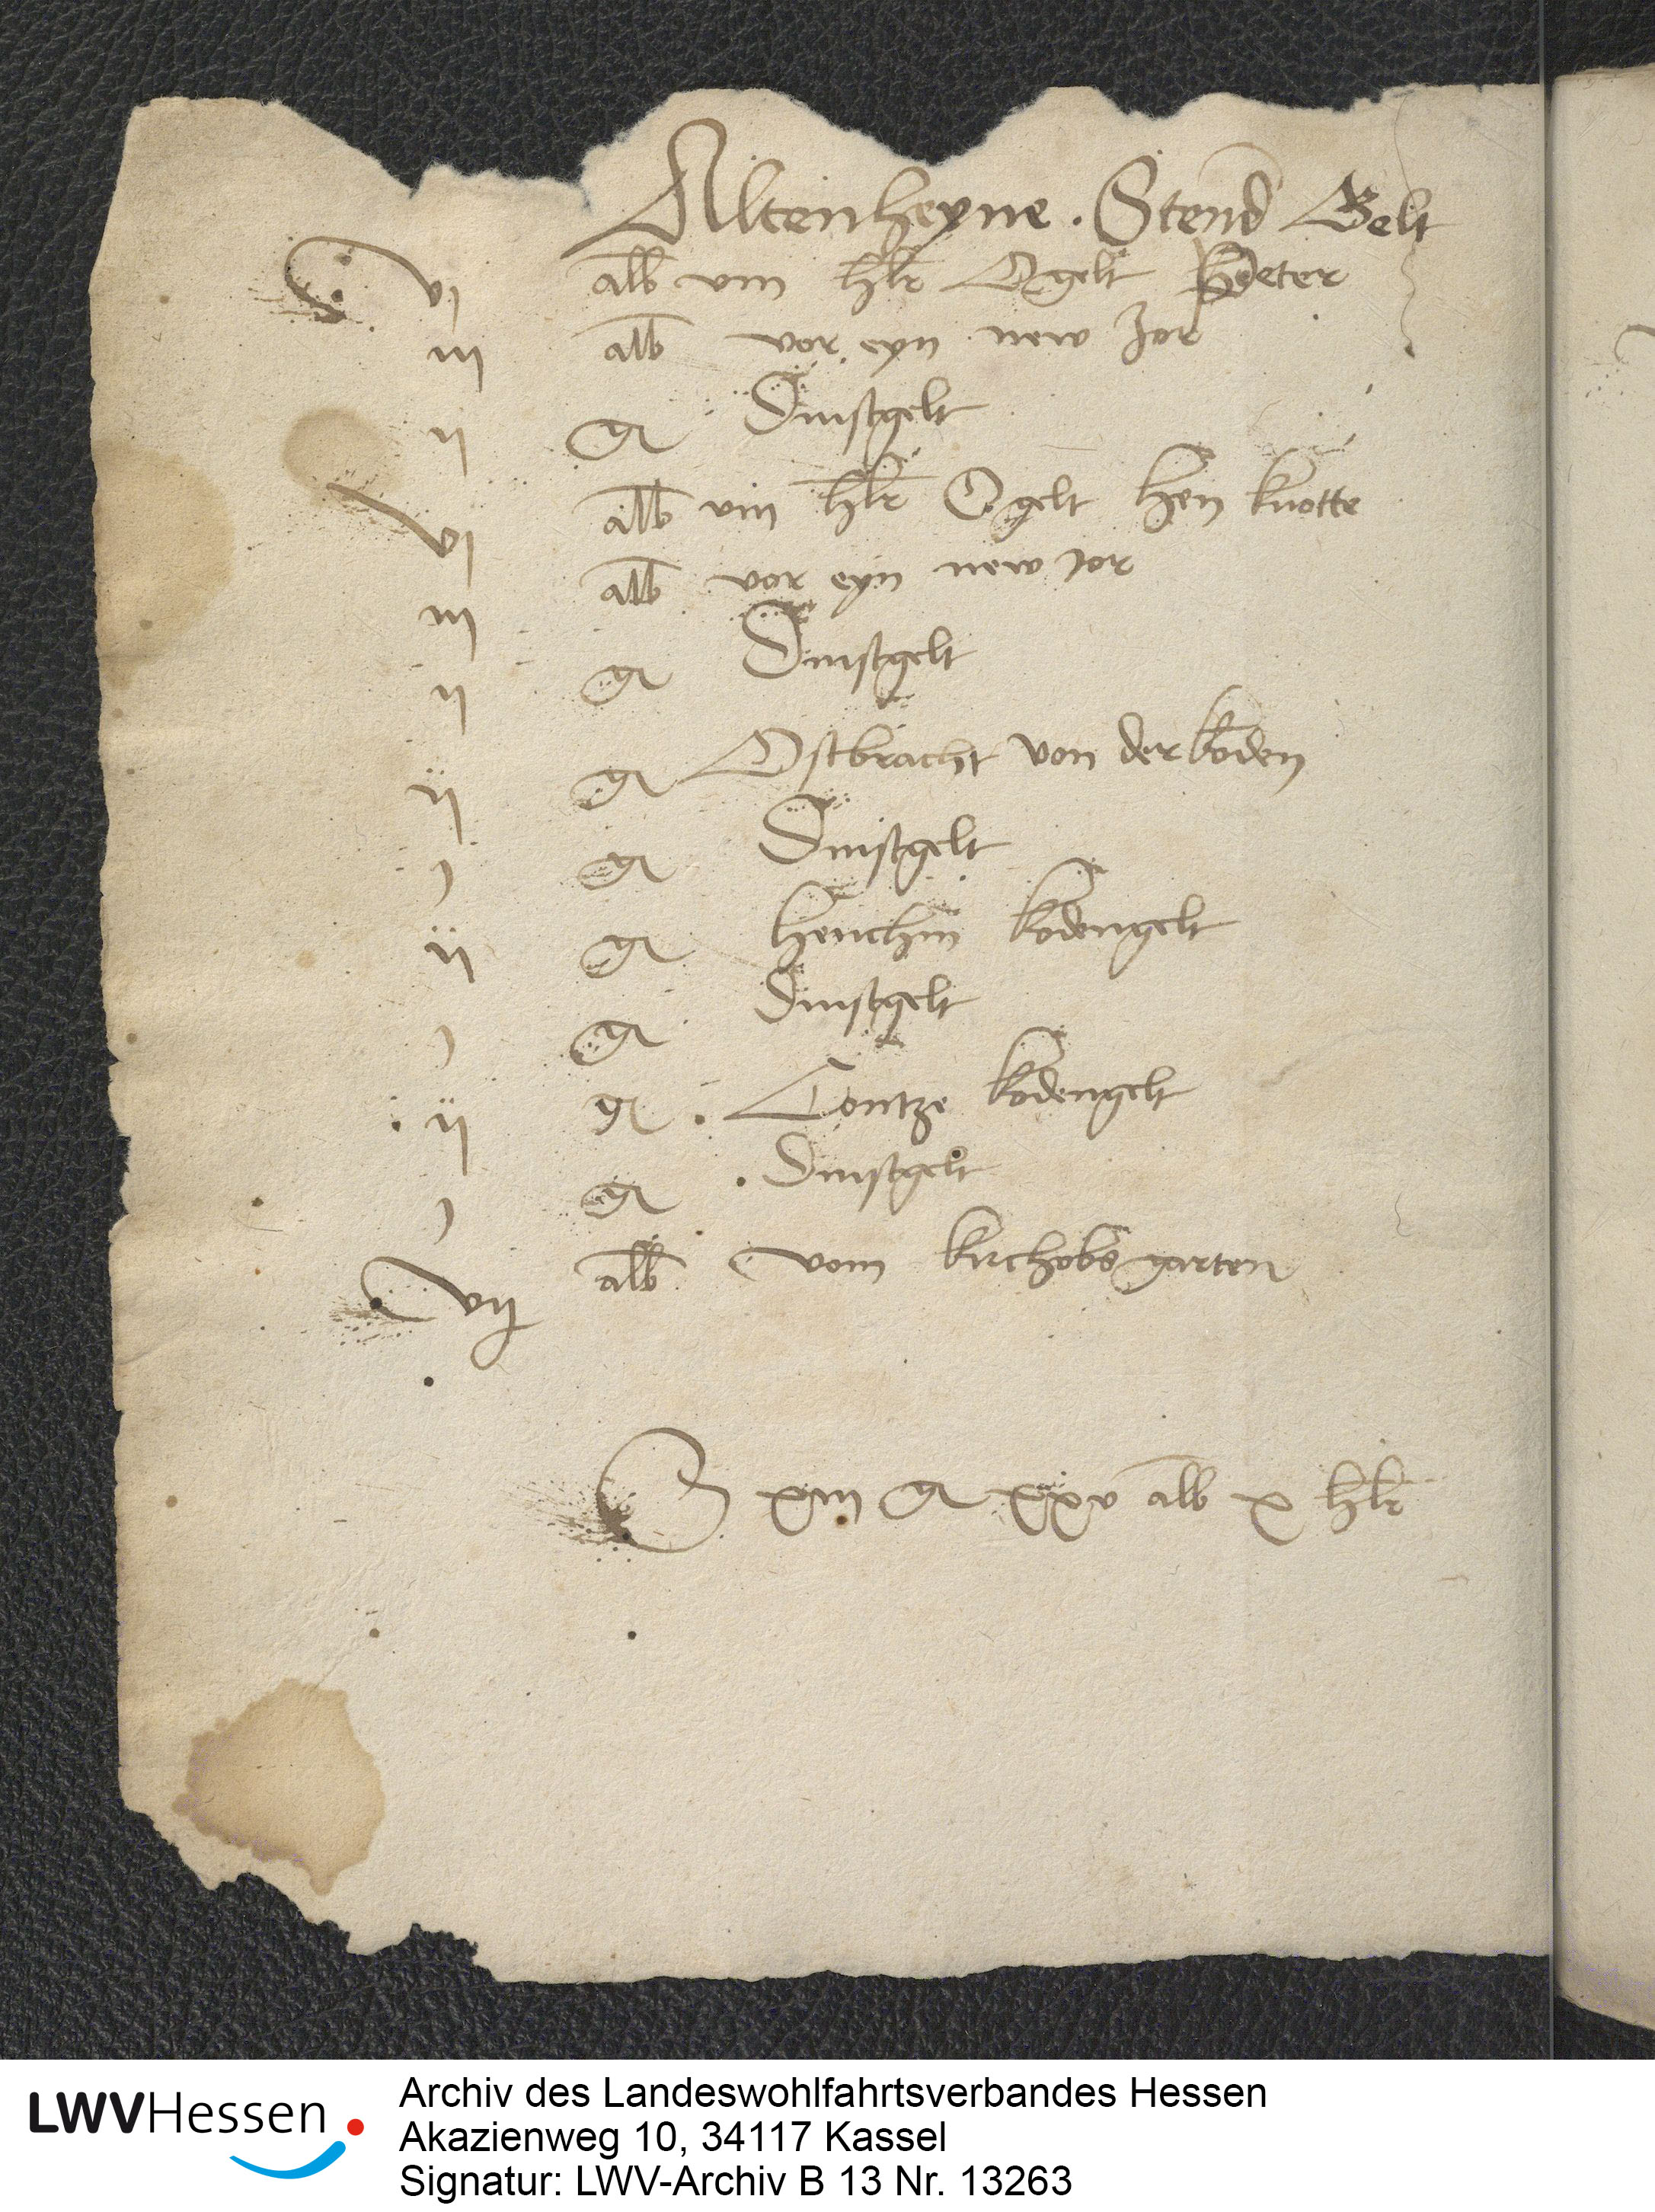 Altenheyne . Stend Gelt
vi alb viii hlr Ogelt Peter
iii alb vor eyn new Jor
ii gl Dinstgelt
vi alb viii hlr Ogelt Hen knotte
iii alb vor eyn new Jor
ii gl Dinstgelt
ii gl Ostbracht von der koden
j gl Dinstgelt
ii gl Henchin kodengelt
j gl Dinstgelt
ii gl . Contze kodengelt
j gl . Dinstgelt
vij alb vom kirchobs garten
S xiii gl xxv alb x hlr
LWVHessen
Archiv des Landeswohlfahrtsverbandes Hessen
Akazienweg 10, 34117 Kassel
Signatur: LWV-Archiv B 13 Nr. 13263